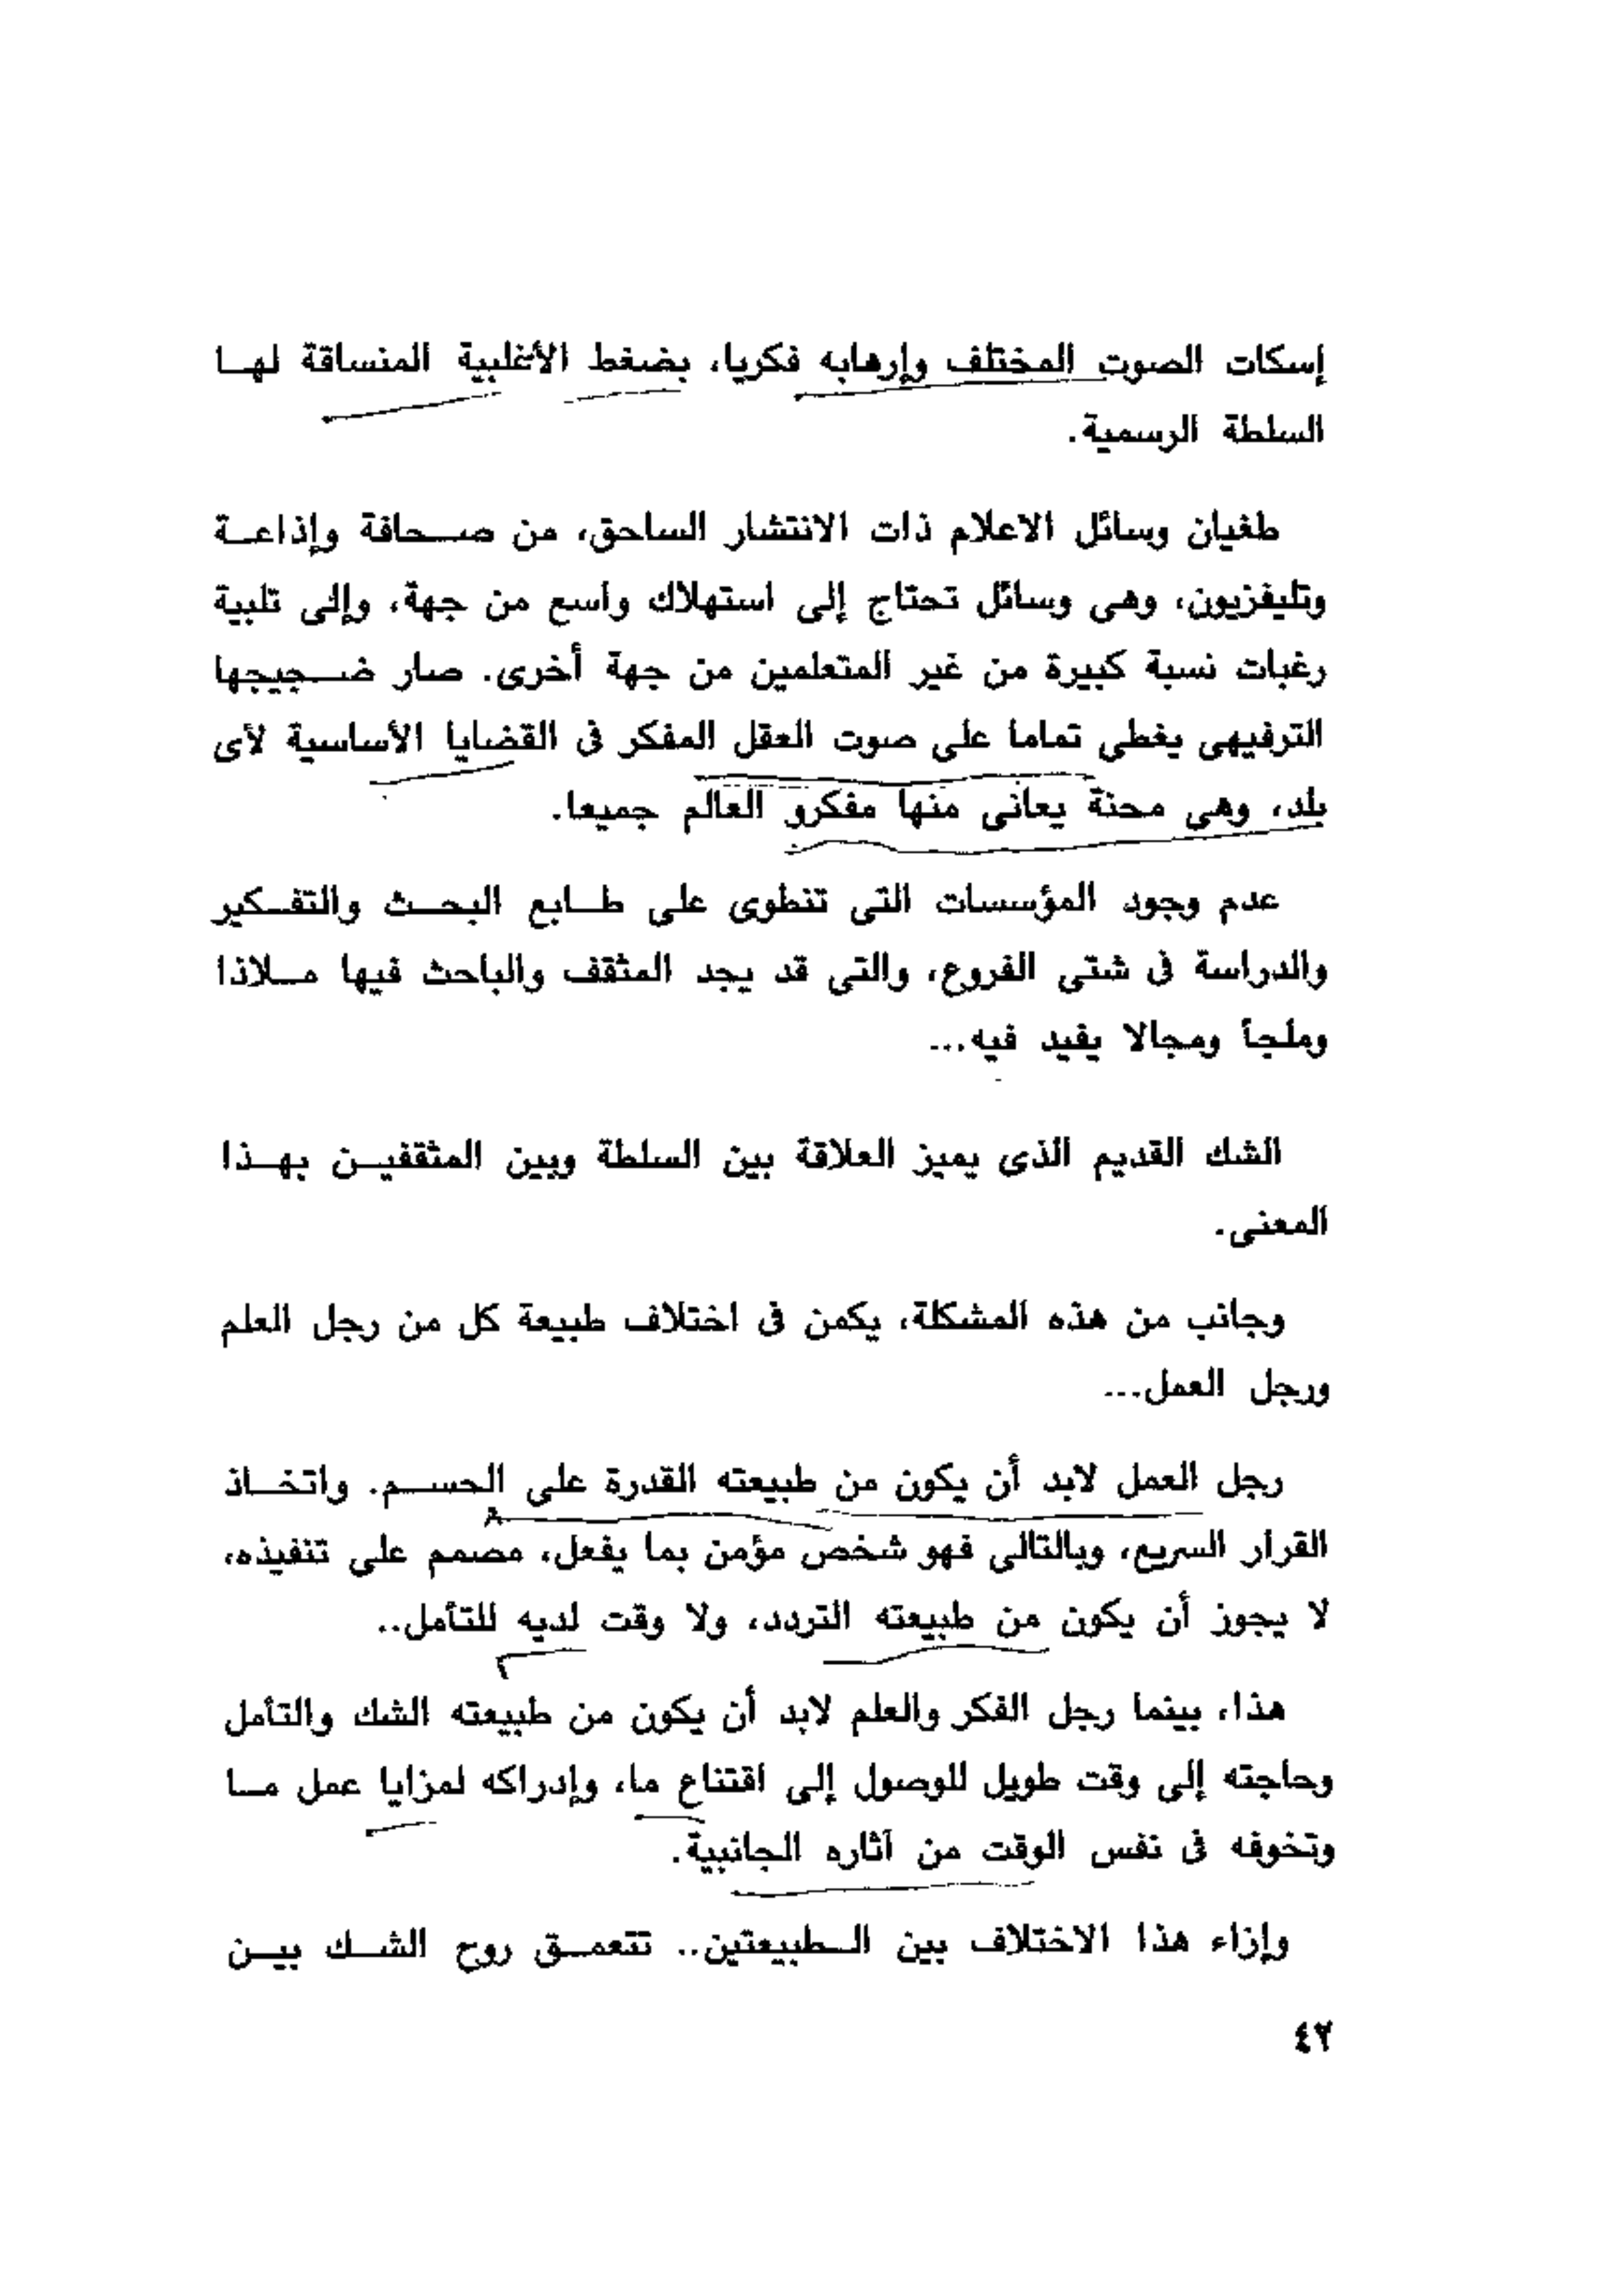 إسكات الصوت المختلف وإرهابه فكريا، بضغط الأغلبية المنساقة لها
السلطة الرسمية.
طغيان وسائل الاعلام ذات الانتشار الساحق، من صحافة وإذاعة
وتليفزيون، وهى وسائل تحتاج إلى استهلاك واسع من جهة، وإلى تلبية
رغبات نسبة كبيرة من غير المتعلمين من جهة أخرى. صار ضجيجها
الترفيهى يغطى تماما على صوت العقل المفكر فى القضايا الأساسية لأى
بلد، وهى محنة يعانى منها مفكرو العالم جميعا.
عدم وجود المؤسسات التى تنطوى على طابع البحث والتفكير
والدراسة فى شتى الفروع، والتى قد يجد المثقف والباحث فيها ملاذا
وملجأ ومجالا يفيد فيه...
الشك القديم الذى يميز العلاقة بين السلطة وبين المثقفين بهذا
المعنى.
وجانب من هذه المشكلة، يكمن فى اختلاف طبيعة كل من رجل العلم
ورجل العمل...
رجل العمل لابد أن يكون من طبيعته القدرة على الحسم. واتخاذ
القرار السريع، وبالتالى فهو شخص مؤمن بما يفعل، مصمم على تنفيذه،
لا يجوز أن يكون من طبيعته التردد، ولا وقت لديه للتأمل..
هذا، بينما رجل الفكر والعلم لابد أن يكون من طبيعته الشك والتأمل
وحاجته إلى وقت طويل للوصول إلى اقتناع ما، وإدراكه لمزايا عمل ما
وتخوفه فى نفس الوقت من آثاره الجانبية.
وإزاء هذا الاختلاف بين الطبيعتين.. تتعمق روح الشك بين
٤٢